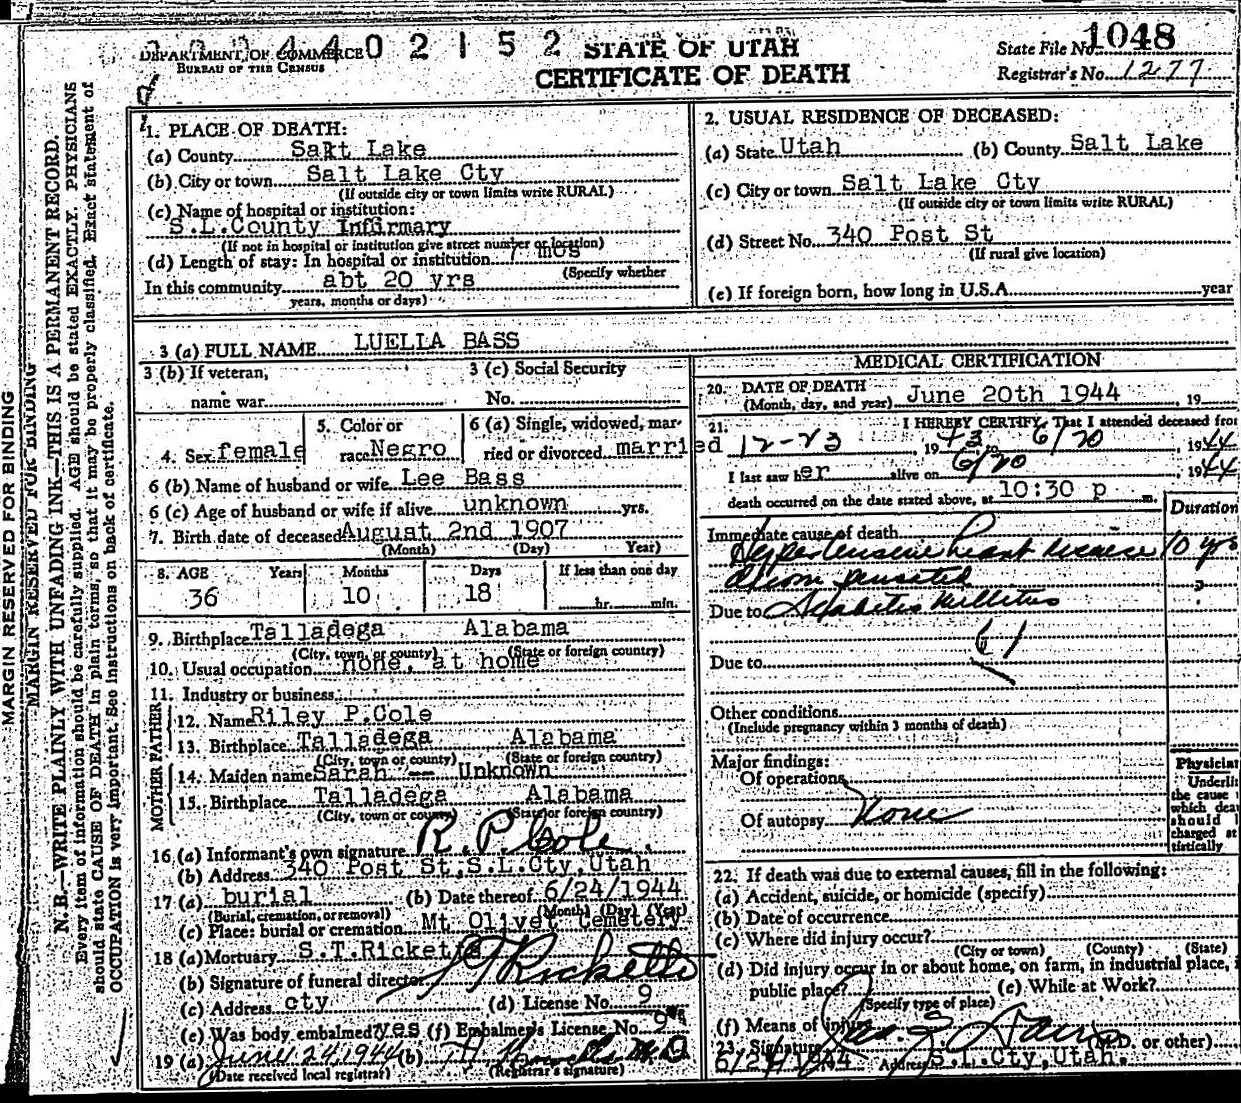 DEPARTMENT OF COMMERCE
BUREAU OF THE CENSUS
4 4 0 2 1 5 2
STATE OF UTAH
CERTIFICATE OF DEATH
State File No. 1048
Registrar's No. 1277
MARGIN RESERVED FOR BINDING
MARGIN RESERVED FOR BINDING
N. B.—WRITE PLAINLY WITH UNFADING INK—THIS IS A PERMANENT RECORD.
Every item of information should be carefully supplied. AGE should be stated EXACTLY. PHYSICIANS
should state CAUSE OF DEATH in plain terms, so that it may be properly classified. Exact statement of
OCCUPATION is very important. See instructions on back of certificate.
1. PLACE OF DEATH:
(a) County Salt Lake
(b) City or town Salt Lake Cty
(If outside city or town limits write RURAL)
(c) Name of hospital or institution:
S.L.County Infirmary
(If not in hospital or institution give street number or location)
(d) Length of stay: In hospital or institution 7 mos
(Specify whether
In this community abt 20 yrs
years, months or days)
2. USUAL RESIDENCE OF DECEASED:
(a) State Utah (b) County Salt Lake
(c) City or town Salt Lake Cty
(If outside city or town limits write RURAL)
(d) Street No. 340 Post St
(If rural give location)
(e) If foreign born, how long in U.S.A. year
3 (a) FULL NAME LUELLA BASS
3 (b) If veteran,
name war
3 (c) Social Security
No.
4. Sex female
5. Color or
race Negro
6 (a) Single, widowed, mar-
ried or divorced married
6 (b) Name of husband or wife Lee Bass
6 (c) Age of husband or wife if alive unknown yrs.
7. Birth date of deceased August 2nd 1907
(Month) (Day) Year)
8. AGE Years Months Days If less than one day
36 10 18 hr. min.
9. Birthplace Talladega Alabama
(City, town, or county) (State or foreign country)
10. Usual occupation none, at home
11. Industry or business
FATHER
12. Name Riley P.Cole
13. Birthplace Talladega Alabama
(City, town or county) (State or foreign country)
MOTHER
14. Maiden name Sarah -- Unknown
15. Birthplace Talladega Alabama
(City, town or county) (State or foreign country)
16 (a) Informant's own signature R. P. Cole
(b) Address 340 Post St,S.L.Cty,Utah
17 (a) burial (b) Date thereof 6/24/1944
(Burial, cremation, or removal) (Month) (Day) (Year)
(c) Place: burial or cremation Mt Olivet Cemetery
18 (a) Mortuary S.T.Ricketts
(b) Signature of funeral director S T Ricketts
(c) Address cty (d) License No. 9
(e) Was body embalmed? yes (f) Embalmer's License No. 9
19 (a) June 24 1944 (b) M.D.
(Date received local registrar) (Registrar's signature)
MEDICAL CERTIFICATION
20. DATE OF DEATH
(Month, day, and year) June 20th 1944, 19
21. I HEREBY CERTIFY, That I attended deceased from
12-23, 1943 6/20, 1944
I last saw her alive on 6/20 1944
death occurred on the date stated above, at 10:30 p m.
Duration
Immediate cause of death
Hypertensive heart disease 10 yrs
Due to Diabetes Mellitus
61
Due to
Other conditions
(Include pregnancy within 3 months of death)
Major findings:
Of operations
Of autopsy None
Physician
Underline
the cause
which death
should
charged
tistically
22. If death was due to external causes, fill in the following:
(a) Accident, suicide, or homicide (specify)
(b) Date of occurrence
(c) Where did injury occur?
(City or town) (County) (State)
(d) Did injury occur in or about home, on farm, in industrial place, i
public place? (e) While at Work?
(Specify type of place)
(f) Means of injury
23. Signature (M.D. or other)
6/24/1944 Address S.L.Cty,Utah.